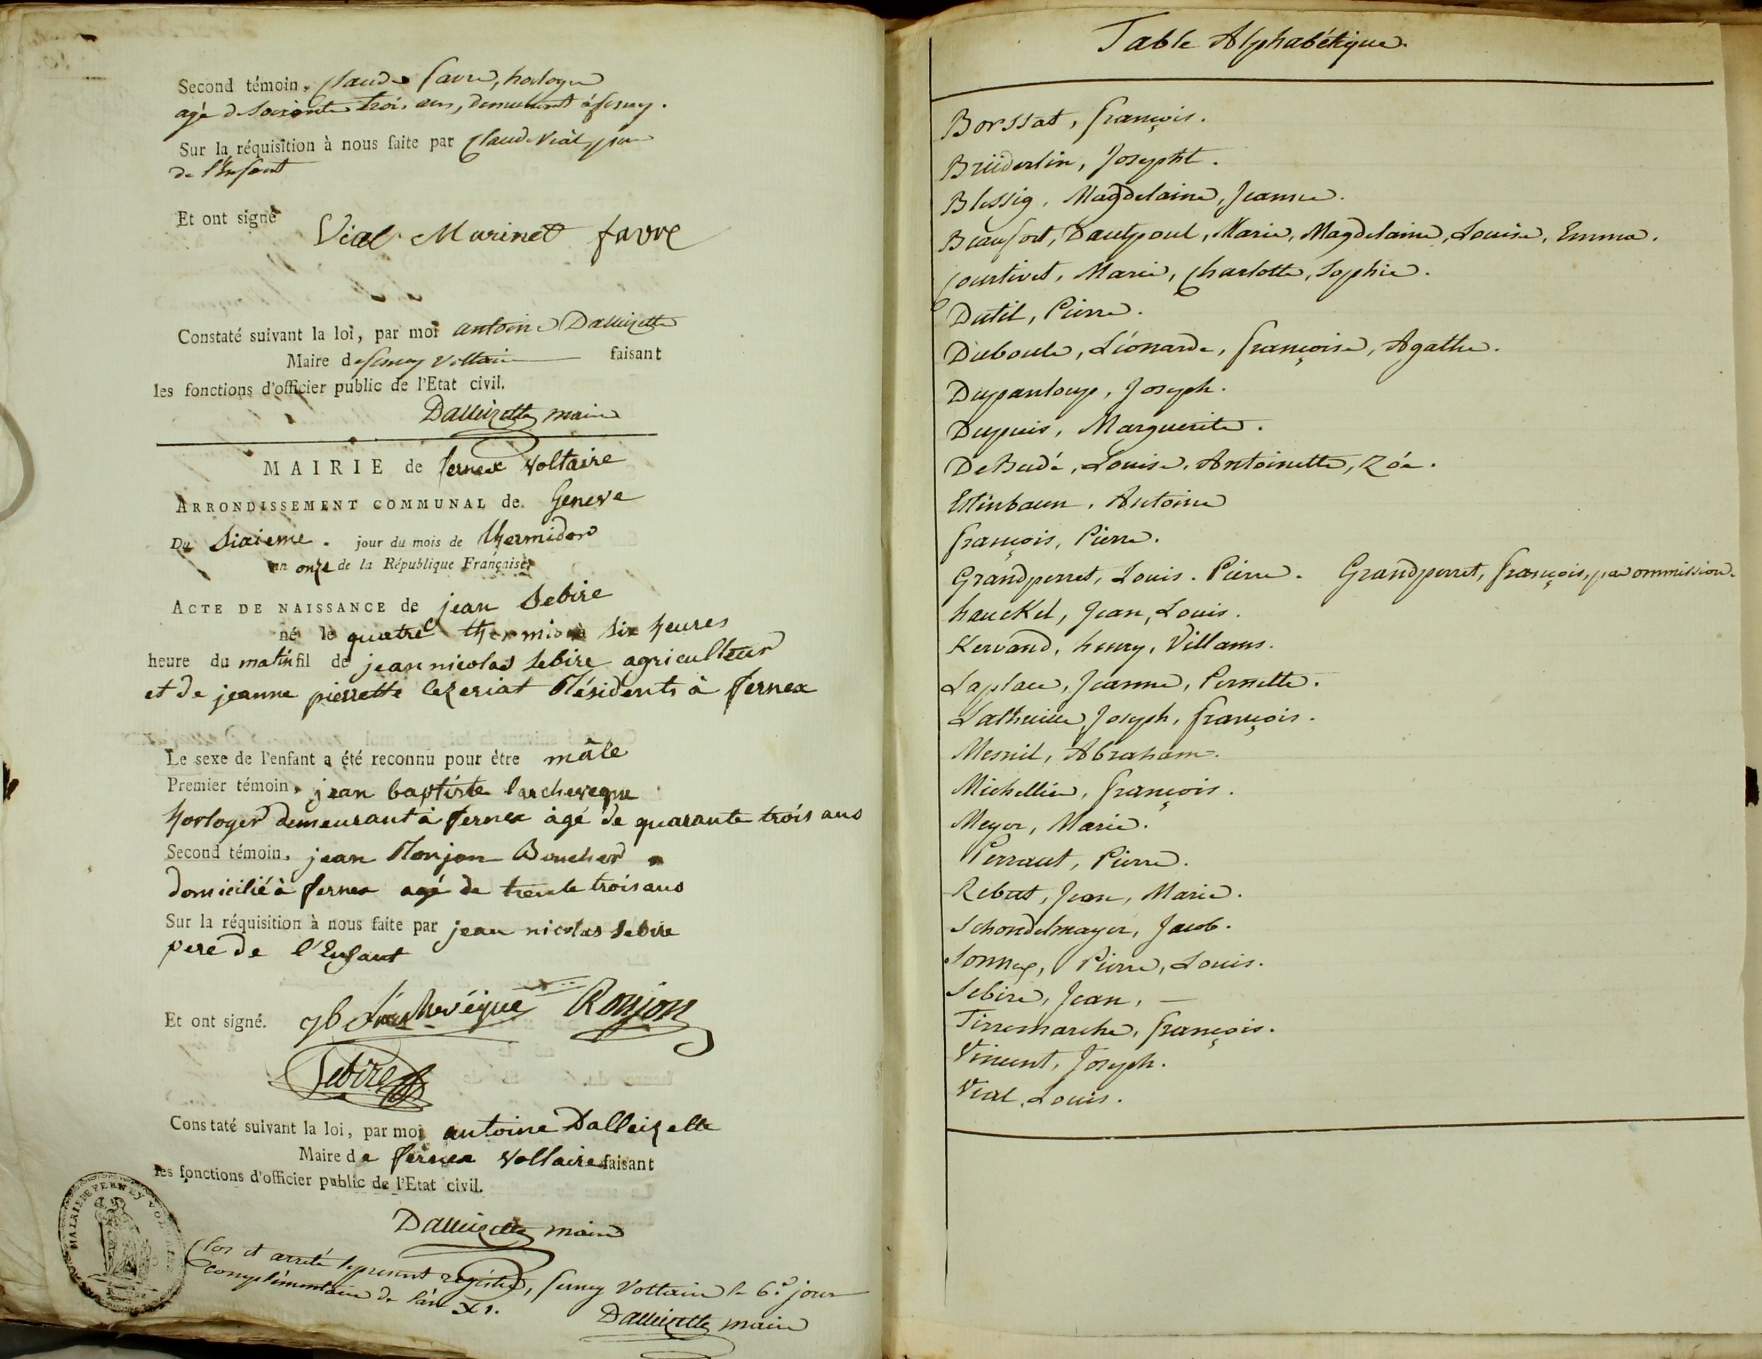 Second témoin, Claude favre, horloger
agé de Soixante trois ans, demeurant à ferney.
Sur la réquisition à nous faite par Claude Vial, père
de l'Enfant
Et ont signé
Vial Marinet favre
Constaté suivant la loi, par moi antoine Dalleizette
Maire de ferney Voltaire faisant
les fonctions d'officier public de l'Etat civil.
Dalleizette maire
MAIRIE de fernex Voltaire
ARRONDISSEMENT COMMUNAL de Geneve
Du Sixieme jour du mois de thermidor
an onze de la République Française
ACTE DE NAISSANCE de jean Sebire
né le quatre thermidor Six heures
heure du matin fil de jean nicolas Sebire agriculteur
et de jeanne pierrette Résidents à fernex
Le sexe de l'enfant a été reconnu pour être mâle
Premier témoin, jean baptiste larcheveque
horloger demeurant à fernex agé de quarante trois ans
Second témoin, jean Ronjon Boucher
domicilié à fernex agé de trente trois ans
Sur la réquisition à nous faite par jean nicolas Sebire
pere de l'Enfant
Et ont signé. Larchevéque Ronjon
Sebire
Constaté suivant la loi, par moi antoine Dalleizette
Maire de fernex Voltaire faisant
les fonctions d'officier public de l'Etat civil.
Dalleizette maire
MAIRIE DE FERNEY VOLTAIRE
Clos et arrêté le présent registre, ferney Voltaire le 6e jour
complémentaire de l'an XI.
Dalleizette maire
Table Alphabétique.
Borssat, françois.
Brüderlin, Joseph.
Blessig, Magdelaine, Jeanne.
Beaufort, Dautpoul, Marie, Magdelaine, Louise, Emma.
Courtivet, Marie, Charlotte, Sophie.
Dutil, Pierre.
Duboule, Léonarde, françoise, Agathe.
Dupanloup, Joseph.
Dupuis, Marguerite.
DeBudé, Louise, Antoinette, Zóe.
Estinbaum, Antoine
françois, Pierre.
Grandperret, Louis. Pierre. Grandperret, françois, par ommission.
hauckel, Jean, Louis.
Kervand, henry, Villams.
Laplace, Jeanne, Pernette.
Lathuille Joseph, françois.
Mesnil, Abraham.
Michellier, françois.
Meyer, Marie.
Perraut, Pierre.
Rebut, Jean, Marie.
Schondelmayer, Jacob.
Sonnex, Pierre, Louis.
Sebire, Jean, —
Tirremarche, françois.
Vincent, Joseph.
Vial, Louis.